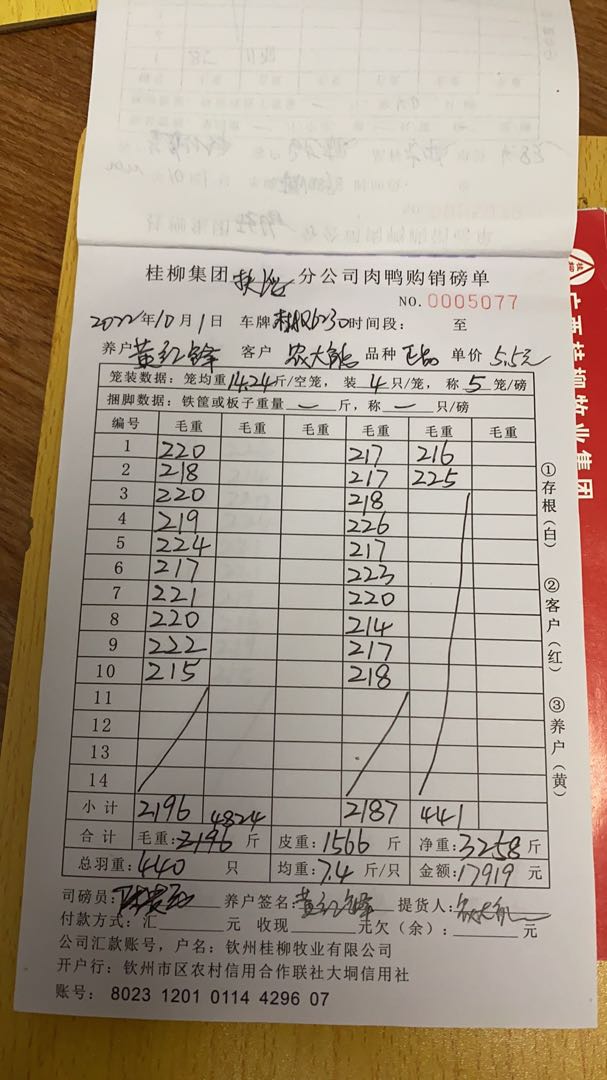 桂柳集团扶绥分公司肉鸭购销磅单
NO.0005077
2022年10月1日 车牌桂 6230时间段: 至
养户黄红锋 客户 农大 品种 正品 单价 5.5元
笼装数据:笼均重14.24斤/空笼,装 4 只/笼,称 5 笼/磅
捆脚数据:铁筐或板子重量 — 斤,称 — 只/磅
编号 毛重 毛重 毛重 毛重 毛重 毛重
1 220 217 216
2 218 217 225
3 220 218
4 219 226
5 224 217
6 217 223
7 221 220
8 220 214
9 222 217
10 215 218
11
12
13
14
小计 2196 4824 2187 441
合计 毛重:2196 斤 皮重:1566 斤 净重:3258 斤
总羽重:440 只 均重:7.4 斤/只 金额:17919 元
司磅员: 养户签名:黄红锋 提货人:农大
付款方式:汇 元 收现 元欠(余): 元
公司汇款账号,户名:钦州桂柳牧业有限公司
开户行:钦州市区农村信用合作联社大垌信用社
账号: 8023 1201 0114 4296 07
①存根(白) ②客户(红) ③养户(黄)
广西桂柳牧业集团